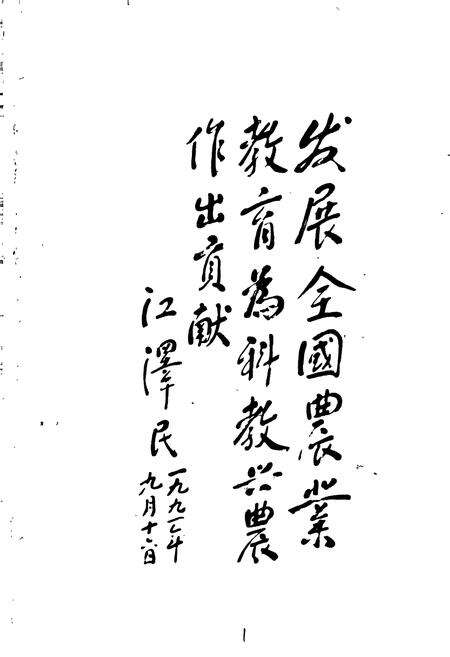 发展全國農業
教育為科教兴農
作出貢献
江澤民
一九九二年
九月十六日
1